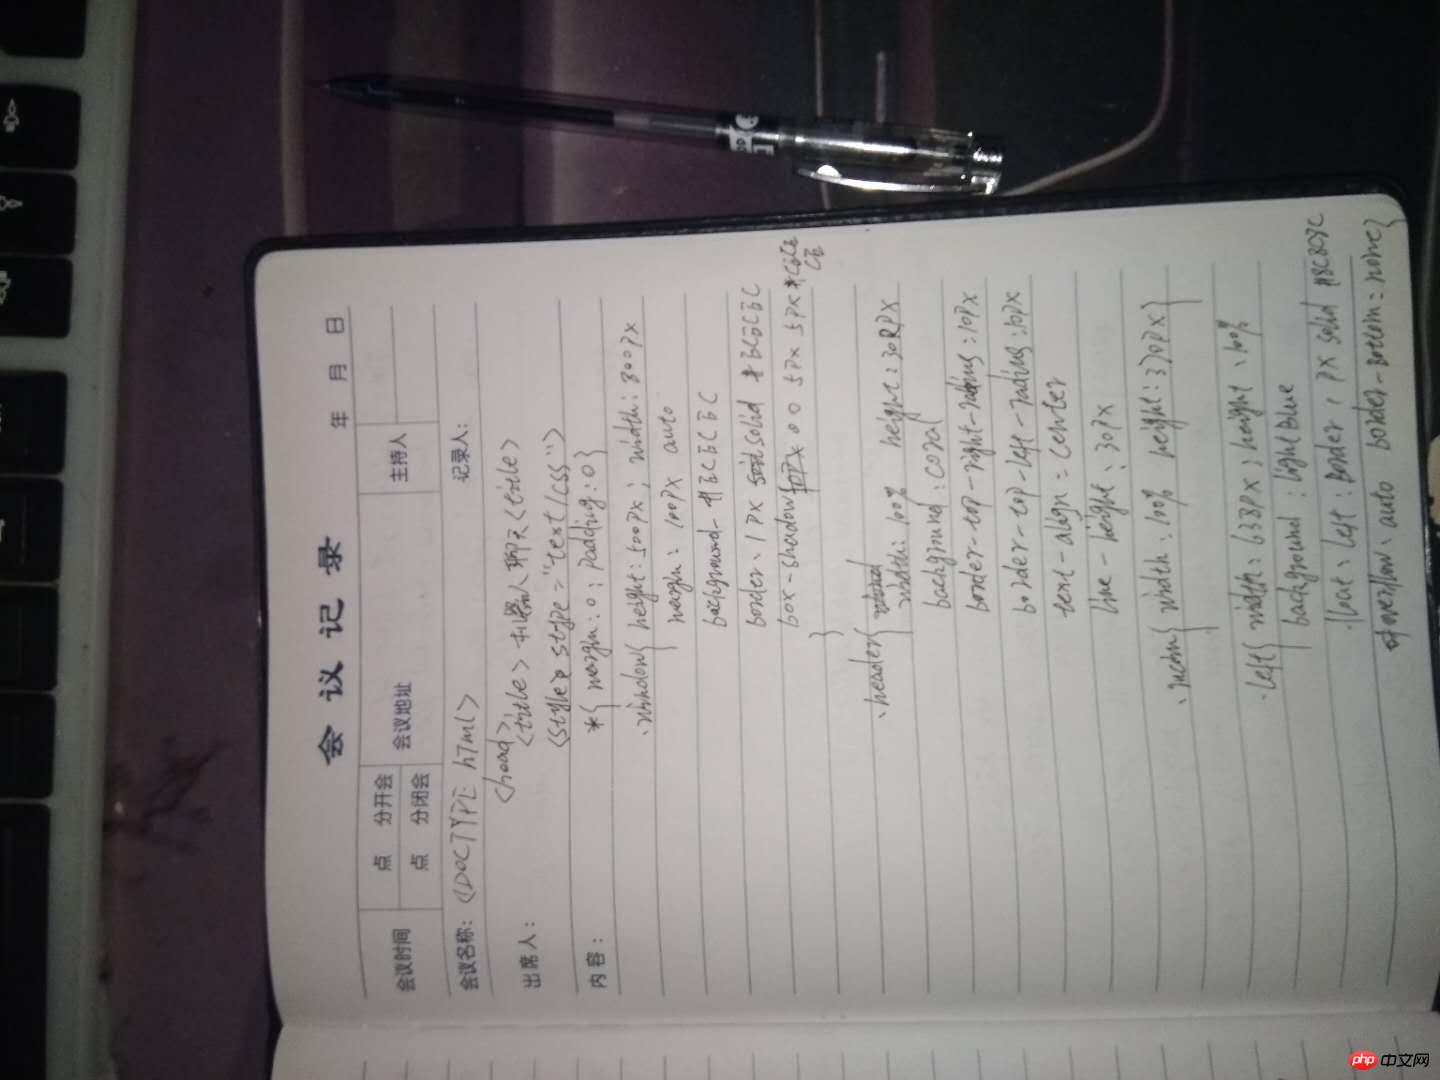 会 议 记 录
年 月 日
会议时间 点 分开会 会议地址 主持人
点 分闭会
会议名称: <DOCTYPE h7ml> 记录人:
<head>
出席人: <title>机器人聊天<title>
<style style="text/css">
内容: *{ margin:0; Padding:0}
.window{ height:500px; width:800px
margin: 100px auto
background-#BCBCBC
border: 1px solid #BCBCBC
box-shadow 0 0 5px 5px
}
.header{ width:100% height:30px
background:coral
border-top-right-radius:10px
border-top-left-radius:10px
text-align=center
line-height:30px
width:100% height:370px}
.left{ width:638px; height:100%
background:lightblue
float:left; Border 1px solid #8C8C8C
overflow:auto border-bottom=none}
php 中文网